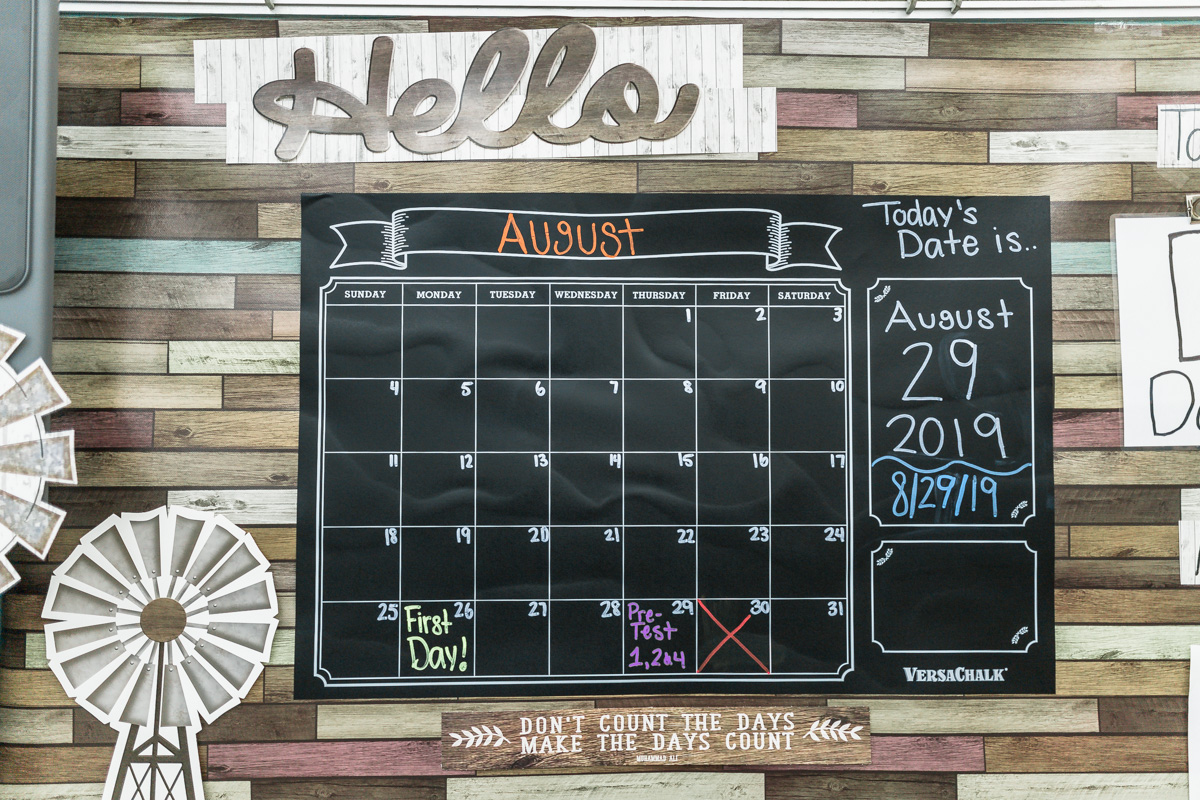 Hello
August
Today's
Date is..
SUNDAY MONDAY TUESDAY WEDNESDAY THURSDAY FRIDAY SATURDAY
1 2 3
4 5 6 7 8 9 10
11 12 13 14 15 16 17
18 19 20 21 22 23 24
25 26 27 28 29 30 31
First
Day!
Pre-
Test
1,2&4
August
29
2019
8/29/19
VERSACHALK
DON'T COUNT THE DAYS
MAKE THE DAYS COUNT
MUHAMMAD ALI